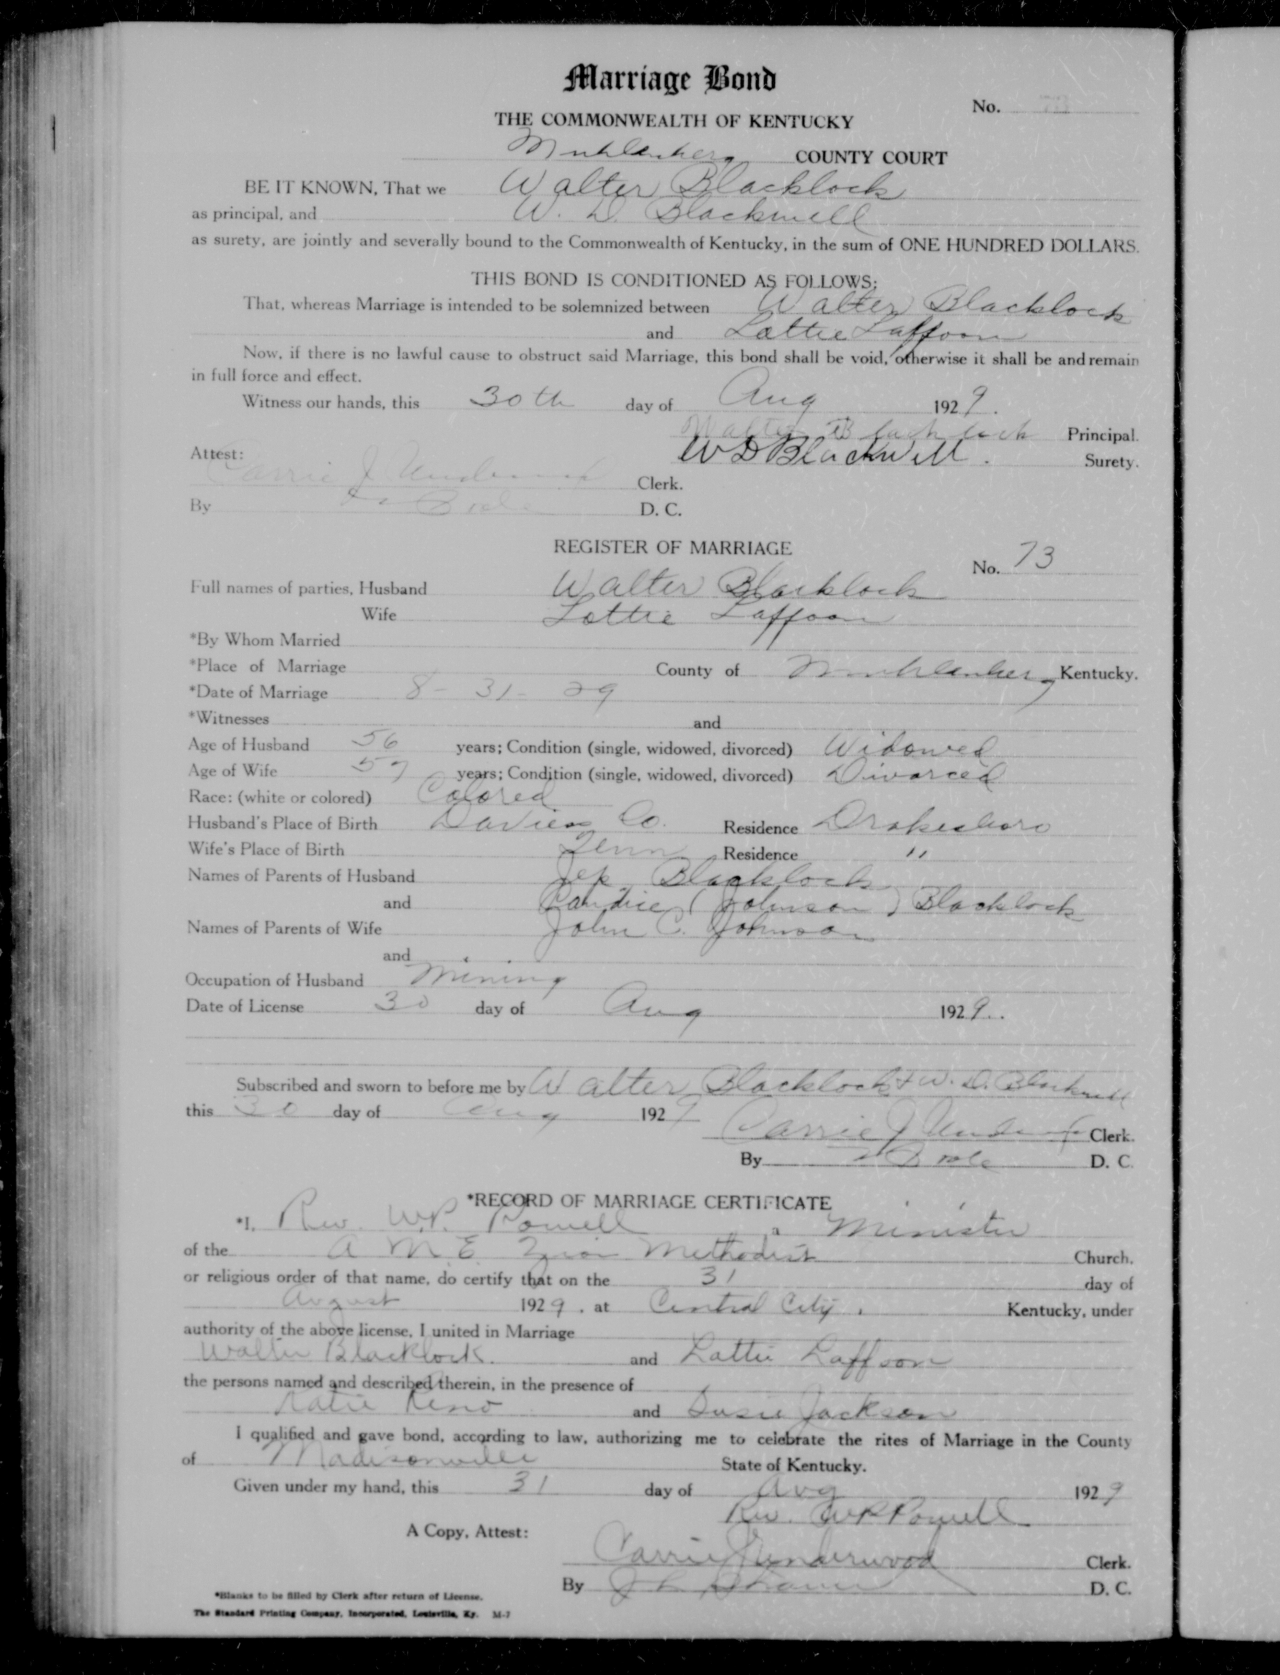 Marriage Bond
No.
THE COMMONWEALTH OF KENTUCKY
Muhlenberg COUNTY COURT
BE IT KNOWN, That we Walter Blacklock
as principal, and W. D. Blackwell
as surety, are jointly and severally bound to the Commonwealth of Kentucky, in the sum of ONE HUNDRED DOLLARS.
THIS BOND IS CONDITIONED AS FOLLOWS:
That, whereas Marriage is intended to be solemnized between Walter Blacklock
and Lottie Laffoon
Now, if there is no lawful cause to obstruct said Marriage, this bond shall be void, otherwise it shall be and remain
in full force and effect.
Witness our hands, this 30th day of Aug 1929.
Walter Blacklock Principal.
Attest: W D Blackwell. Surety.
Carrie J Underwood Clerk.
By D. C.
REGISTER OF MARRIAGE
No. 73
Full names of parties, Husband Walter Blacklock
Wife Lottie Laffoon
*By Whom Married
*Place of Marriage County of Muhlenberg Kentucky.
*Date of Marriage 8-31-29
*Witnesses and
Age of Husband 56 years; Condition (single, widowed, divorced) Widowed
Age of Wife 57 years; Condition (single, widowed, divorced) Divorced
Race: (white or colored) Colored
Husband's Place of Birth Daviess Co. Residence Drakesboro
Wife's Place of Birth Tenn Residence "
Names of Parents of Husband Jep Blacklock
and Candice (Johnson) Blacklock
Names of Parents of Wife John C. Johnson
and
Occupation of Husband Mining
Date of License 30 day of Aug 1929.
Subscribed and sworn to before me by Walter Blacklock & W. D. Blackwell
this 30 day of Aug 1929
Carrie J Underwood Clerk.
By D. C.
*RECORD OF MARRIAGE CERTIFICATE
*I, Rev. W.P. Powell, a Minister
of the A. M. E. Zion Methodist Church,
or religious order of that name, do certify that on the 31 day of
August 1929, at Central City, Kentucky, under
authority of the above license, I united in Marriage
Walter Blacklock. and Lottie Laffoon
the persons named and described therein, in the presence of
Katie Reno and Susie Jackson
I qualified and gave bond, according to law, authorizing me to celebrate the rites of Marriage in the County
of Madisonville State of Kentucky.
Given under my hand, this 31 day of Aug 1929
Rev. W P Powell
A Copy, Attest:
Carrie J Underwood Clerk.
By D. C.
*Blanks to be filled by Clerk after return of License.
The Standard Printing Company, Incorporated, Louisville, Ky. M-7